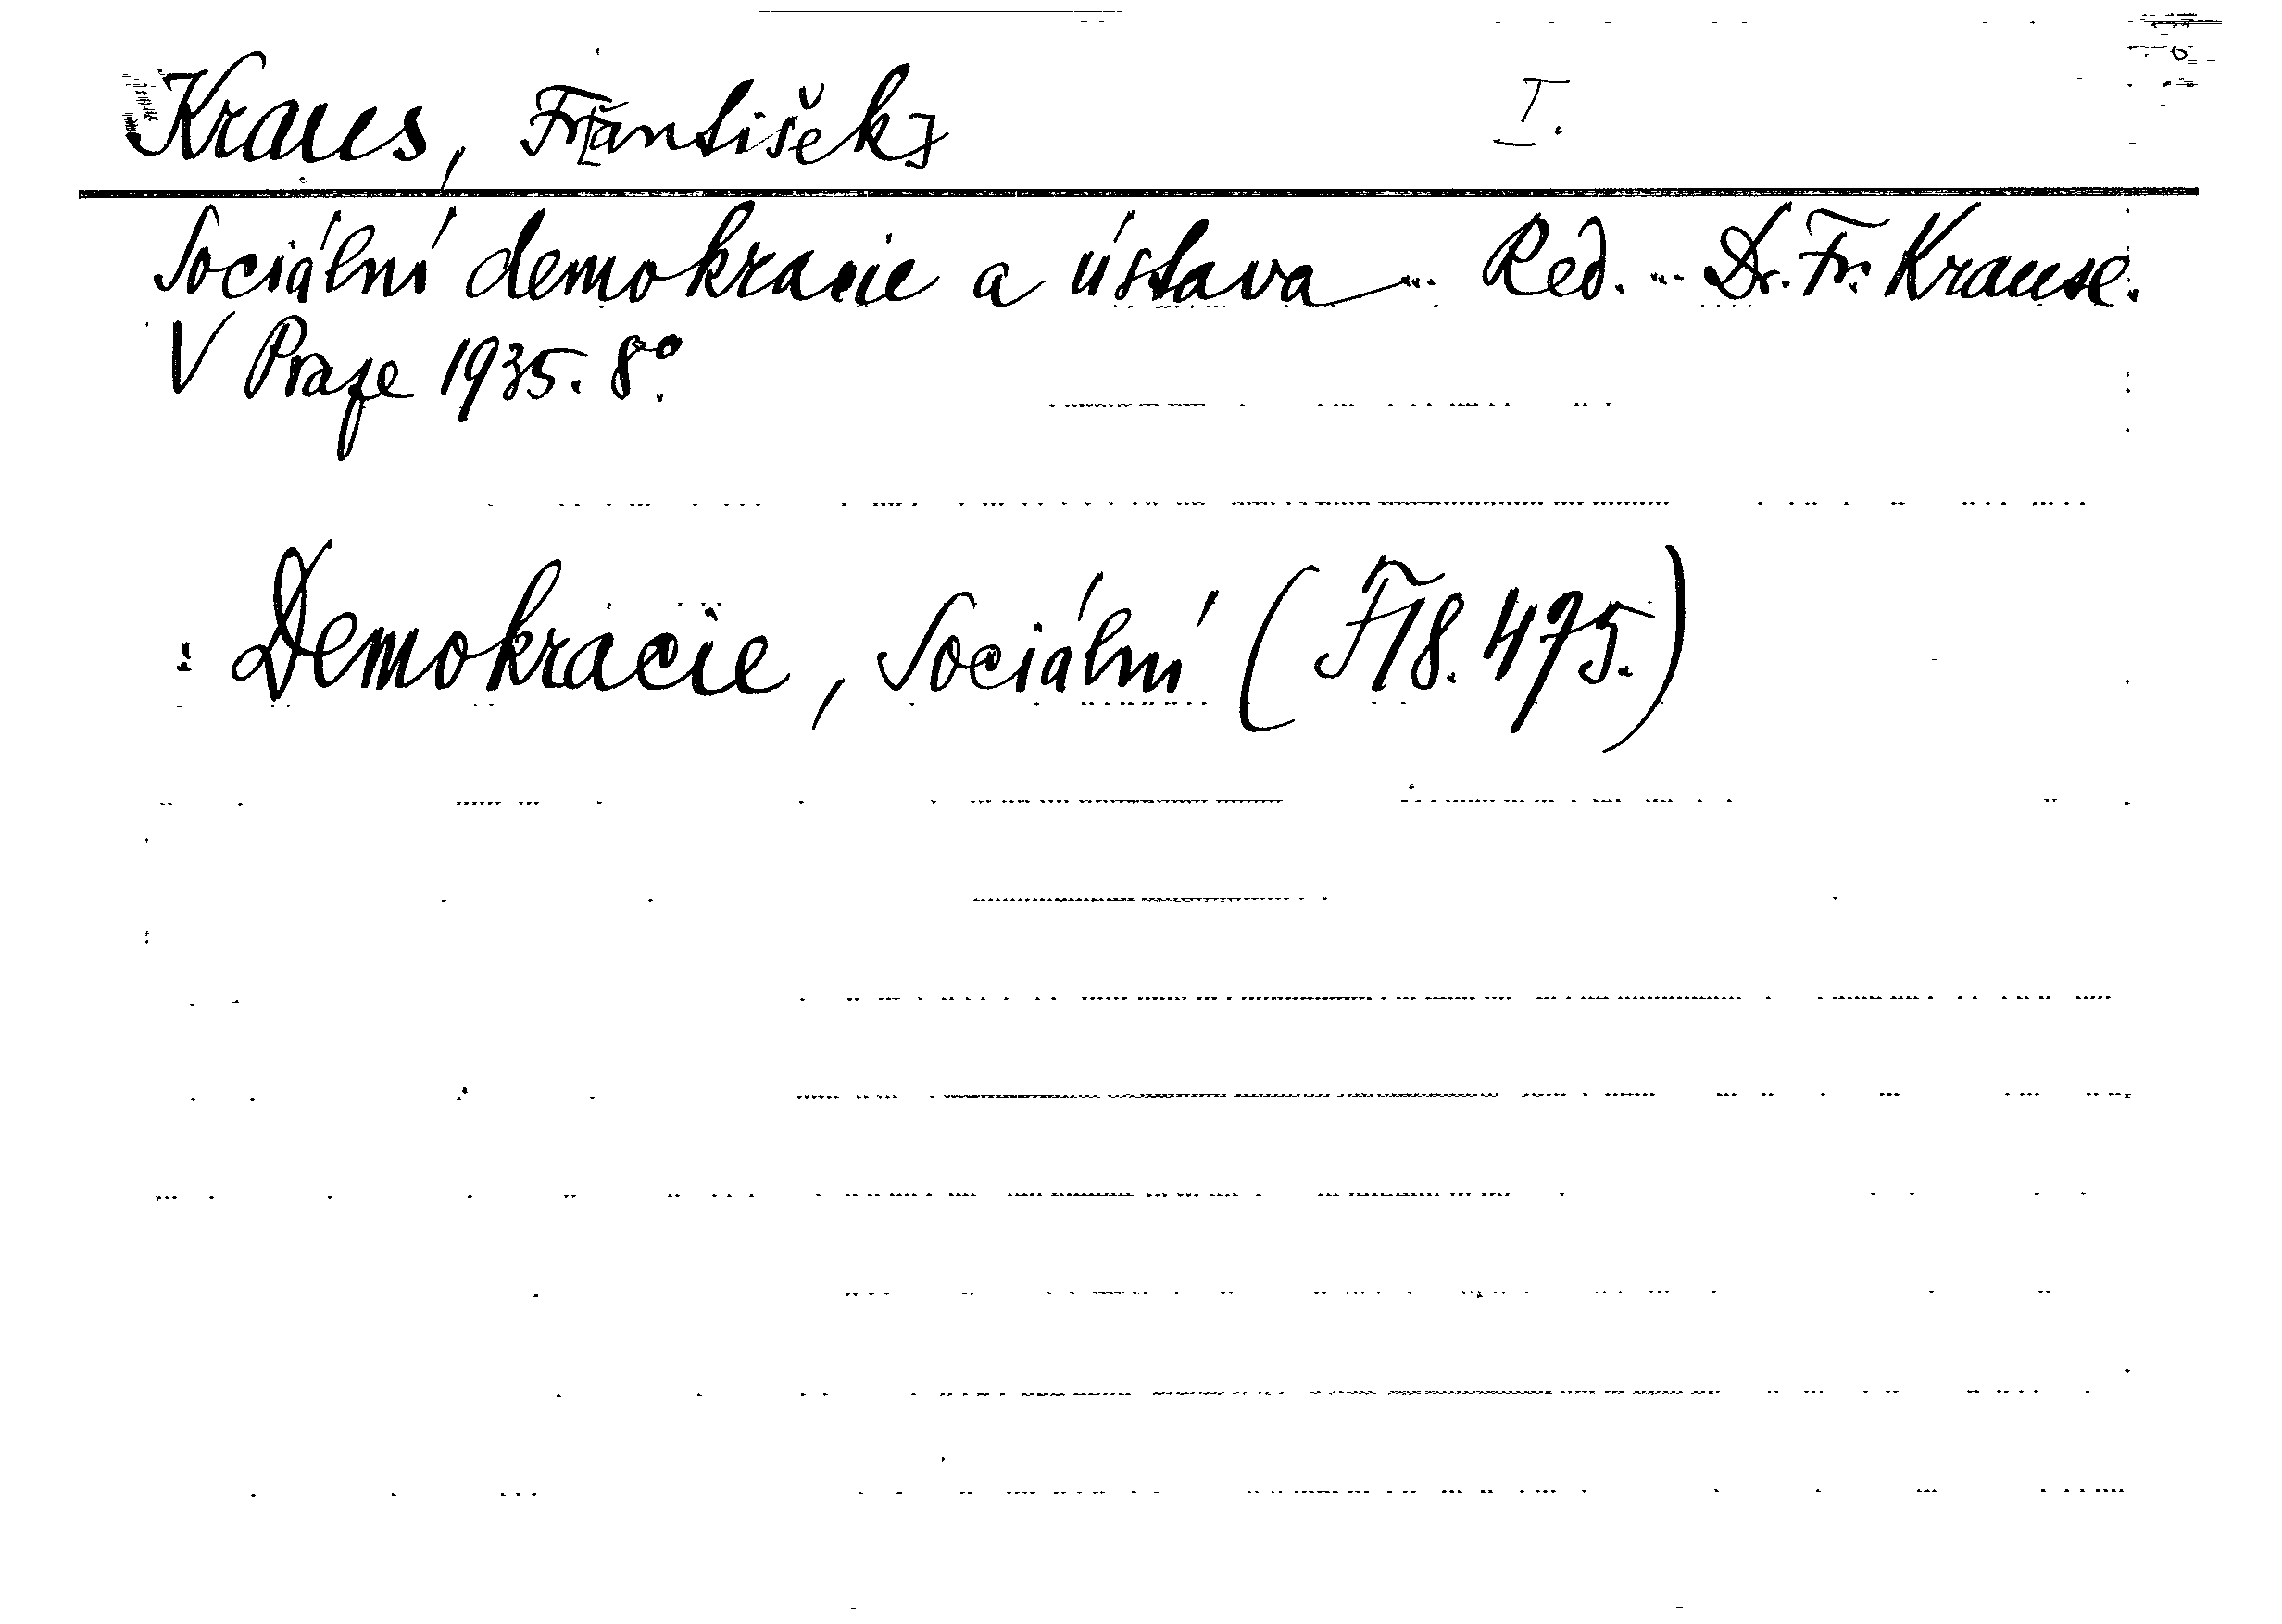 Kraus, Fr[antišek] I.
Sociální demokracie a ústava ... Red. ... Dr. Fr. Krause.
V Praze 1935. 8°.
: Demokracie, Sociální (F 18.475.)